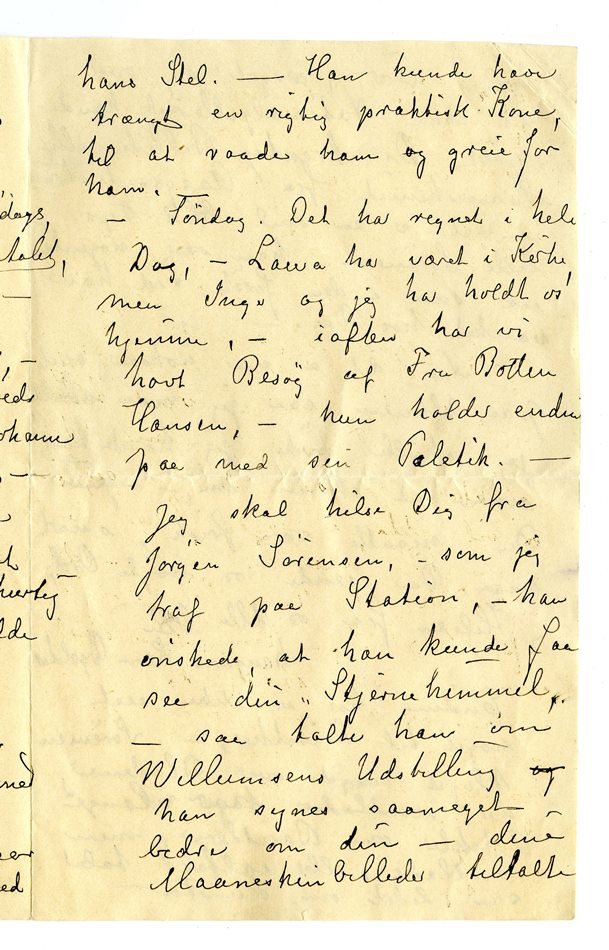 hans Stel. — Han kunde have
trængt en rigtig praktisk Kone,
til at raade ham og greie for
ham.
— Søndag. Det har regnet i hele
Dag, — Laura har været i Kirke,
men Inger og jeg har holdt os
hjemme, — iaften har vi
havt Besøg af Fru Botten
Hansen, — hun holder endnu
paa med sin Poletik. —
Jeg skal hilse Dig fra
Jørgen Sørensen, — som jeg
traf paa Station, — han
ønskede, at han kunde faa
see din „Stjernehimmel„.
— saa talte han om
Willumsens Udstilling og
han synes saameget
bedre om din — dine
Maaneskinbilleder tiltalte
dags,
talet,
—
, —
reds
ohann
—
hurtig
lde
ned
ed